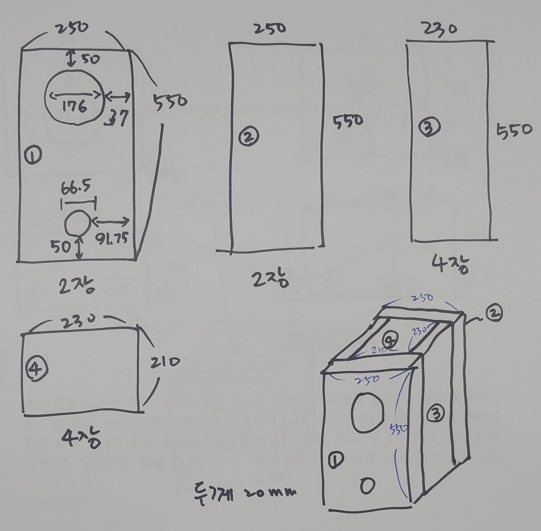 250
50
176
37
①
550
66.5
50
91.75
2장
250
②
550
2장
230
③
550
4장
230
④
210
4장
250
②
④
230
210
250
①
③
550
두께 20mm